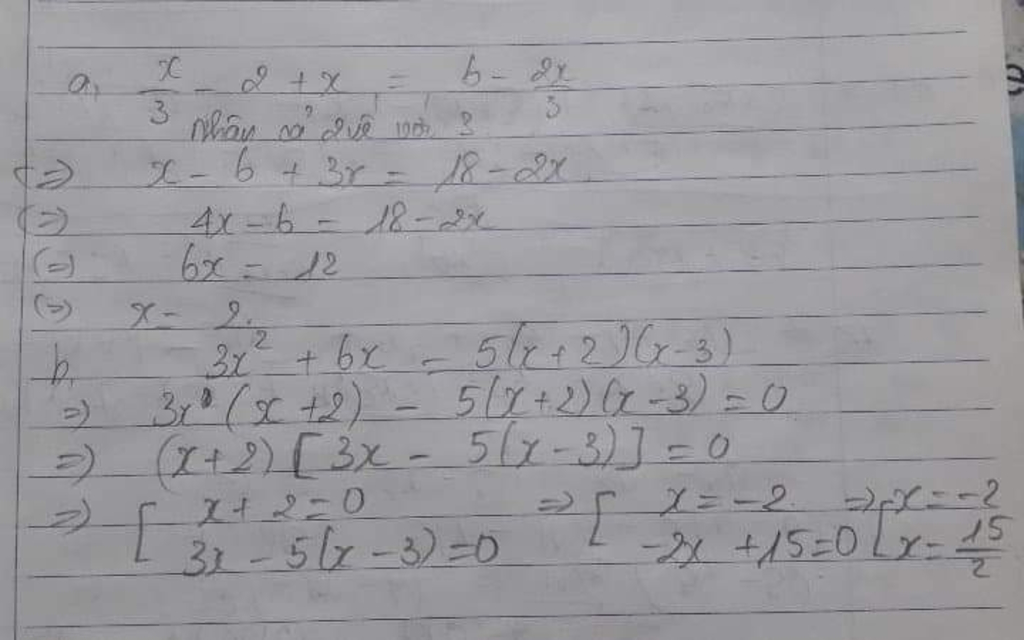 a, x/3 - 2 + x = 6 - 2x/3
Nhân cả 2 vế với 3
(=) x - 6 + 3x = 18 - 2x
(=) 4x - 6 = 18 - 2x
(=) 6x = 12
(=) x = 2.
b, 3x² + 6x = 5(x+2)(x-3)
=) 3x (x+2) - 5(x+2)(x-3) = 0
=) (x+2) [3x - 5(x-3)] = 0
=) [ x + 2 = 0 => [ x = -2 => [ x = -2
3x - 5(x-3) = 0 -2x + 15 = 0 x = 15/2